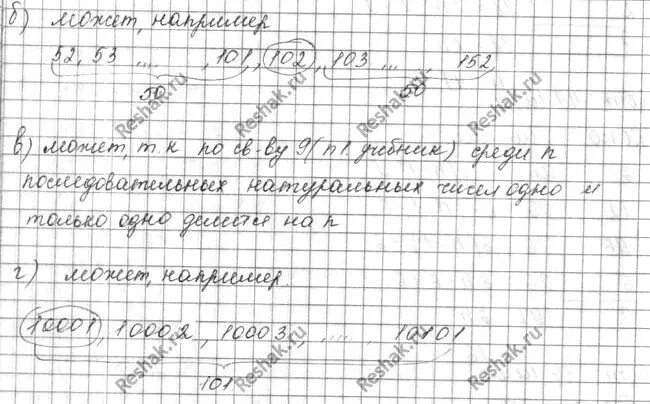 б) может, например
52, 53 .... , 101, 102, 103 ... , 152
50 50
в) может, т.к по св-ву 9 (п 1. учебник) среди n
последовательных натуральных чисел одно и
только одно делится на n
г) может, например
10001, 10002, 10003, ..... , 10101
101
Reshak.ru
Reshak.ru
Reshak.ru
Reshak.ru
Reshak.ru
Reshak.ru
Reshak.ru
Reshak.ru
Reshak.ru